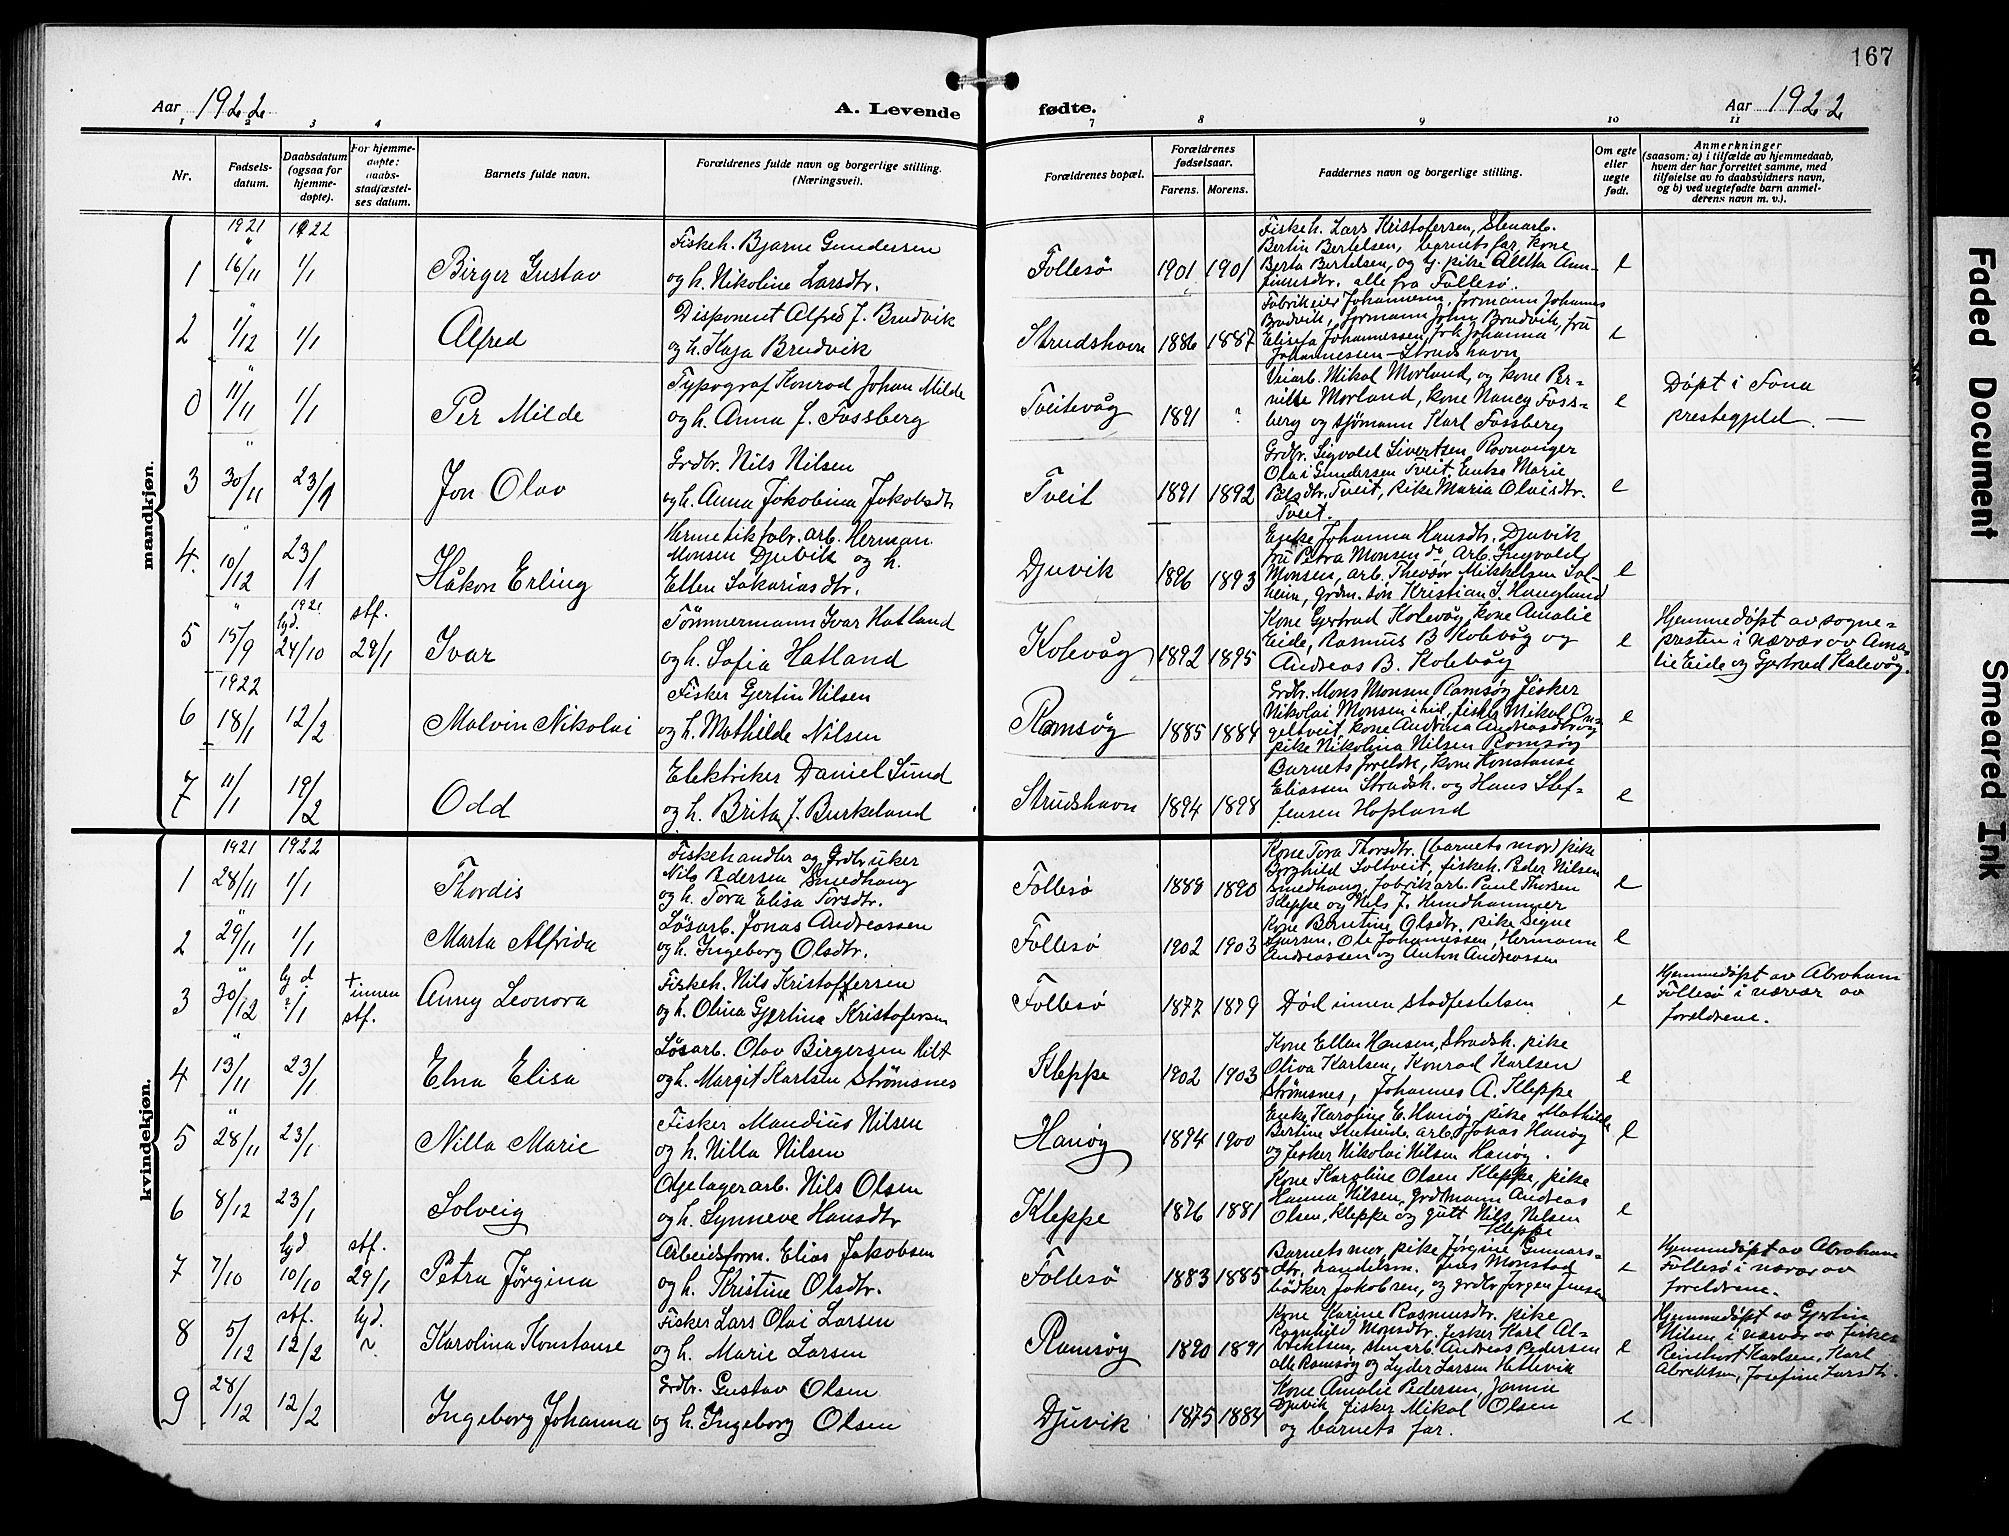 167
Aar 1922
A. Levende fødte.
Aar 1922
1 2 3 4 7 8 9 10 11
Nr.
Fødsels-
datum.
Daabsdatum
(ogsaa for
hjemme-
døpte).
For hjemme-
døpte:
daabs-
stadfæstel-
ses datum.
Barnets fulde navn.
Forældrenes fulde navn og borgerlige stilling.
(Næringsvei).
Forældrenes bopæl.
Forældrenes
fødselsaar.
Farens. Morens.
Faddernes navn og borgerlige stilling.
Om egte
eller
uegte
født.
Anmerkninger
(saasom: a) i tilfælde av hjemmedaab,
hvem der har forrettet samme, med
tilføielse av to daabsvidners navn,
og b) ved uegtefødte barn anmel-
derens navn m. v.).
mandkjøn.
1921 1922
1 16/11 1/1 Birger Gustav
Fiskeh. Bjarne Gundersen
og h. Nikoline Larsdtr.
Follesö 1901 1901
Fiskeh. Lars Kristofersen, Stenarb.
Bertin Bertelsen, barnets far, kone
Berta Bertelsen, og pike
alle fra Follesö.
e
2 1/12 1/1 Alfred
Disponent Alfred J. Brudvik
og h. Kaja Brudvik
Strudshavn 1886 1887
Fabrikeier Johannesen, formann Johannes
Brudvik, formann John Brudvik, fru
Elisefa Johannessen, frk. Johanna
Johannessen - Strudshavn
e
0 11/11 1/1 Per Milde
Typograf Konrad Johan Milde
og h. Anna J. Fossberg
Tveitevåg 1891 ?
Veiarb. Mikal Morland, og kone Per-
nille Morland, kone Nancy Foss-
berg og sjømann Karl Fossberg
e
Döpt i Fana
prestegjeld. —
3 30/11 23/1 Jon Olav
Grdbr. Nils Nilsen
og h. Anna Jakobina Jakobsdtr
Tveit 1891 1892
Grdbr. Sigvald Sivertsen Ravnanger
Olai Gundersen Tveit. Enke Marie
Tveit, Pike Maria Olaisdtr.
Tveit.
e
4. 10/12 23/1 Håkon Erling
Hermetikfabr. arb. Herman
Monsen Djuvik og h.
Ellen Sakariasdtr.
Djuvik 1896 1893
Enke Johanna Hansdtr. Djuvik
fru Petra Monsen do Arb. Ingvald
Monsen, arb. Thevdor Mikkelsen Sol-
heim, grdm. sön Kristian S. Hauglund
e
5 15/9 1921 hjd. 24/10 stf. 29/1 Ivar
Tömmermann Ivar Hatland
og h. Sofia Hatland
Kolevåg 1892 1895
Kone Gjertrud Kolevåg, kone Amalie
Eide, Rasmus B Kolevåg og
Andreas B. Kolevåg
e
Hjemmedöpt av sogne=
presten i nærvær av Ama-
lie Eide og Gjertrud Kolevåg.
1922
6 18/1 12/2 Malvin Nikolai
Fisker Gjertin Nilsen
og h. Mathilde Nilsen
Ramsöy 1885 1884
Grdbr. Mons Monsen Ramsöy fisker
Nikolai Monsen ibid, fisker Mikal On-
geltveit, kone Andrina Andreasdtr og
pike Nikolina Nilsen Ramsöy
e
7 11/1 19/2 Odd
Elektriker Daniel Sund
og h. Brita J. Burkeland
Strudshavn 1894 1898
Barnets foreldre, kone Konstanse
Eliassen Strudsh. og Hans Stef-
fensen Hopland
e
kvindekjøn.
1921 1922
1 28/11 1/1 Thordis
Fiskehandler og Grdbruker
Nils Pedersen Smedhaug
og h. Tora Elisa Torsdtr.
Follesö 1889 1890
Kone Tora Thorsdtr. (barnets mor) pike
Borghild Soltveit, fiskeh. Peder Nilsen
Smedhaug, fabrikarb. Paul Thorsen
Kleppe og Nils J. Hundhammer
e
2 29/11 1/1 Marta Alfrida
Løsarb. Jonas Andreassen
og h. Ingeborg Olsdtr.
Follesö 1902 1903
Kone Berntine Olsdtr. pike Signe
Ole Johannessen, Hermann
Andreassen og Anton Andreassen
e
3 30/12 hjd ?/1 + innen stf. Anny Leonora
Fiskeh. Nils Kristoffersen
og h. Olina Gjertina Kristofersen
Follesö 1877 1879
Död innen stadfestelsen
e
Hjemmedöpt av Abraham
Follesö i nærvær av
foreldrene.
4 13/11 23/1 Elna Elisa
Løsarb. Olav Birgersen Hilt
og h. Margit Karlsen Strömsnes
Kleppe 1902 1903
Kone Ellen Hansen, Strudsh. pike
Oliva Karlsen, Konrad Karlsen
Strömsnes, Johannes A. Kleppe
e
5 28/11 23/1 Nilla Marie
Fisker Mandius Nilsen
og h. Nilla Nilsen
Hanöy 1894 1900
Enke Karoline E. Hanöy pike Mathilde
Bertine arb. Jonas Hanöy
og fisker Nikolai Nilsen Hanöy.
e
6 8/12 23/1 Solveig
Oljelagerarb. Nils Olsen
og h. Synneve Hansdtr
Kleppe 1876 1881
Kone Karoline Olsen Kleppe, pike
Hanna Nilsen, grdmann Andreas
Olsen, Kleppe og gutt Nils Nilsen
Kleppe
e
7 7/10 hjd 10/10 stf. 29/1 Petra Jörgina
Arbeidsform. Elias Jakobsen
og h. Kristine Olsdtr.
Follesö 1883 1885
Barnets mor, pike Jörgine Gunnars-
dtr, handelsm. Jens Monstad
bödker Jakobsen, og grdbr Jörgen Jensen
e
Hjemmedöpt av Abraham
Follesö i nærvær av
foreldrene.
8 5/12 stf. 12/2 hjd. ~ Karolina Konstanse
Fisker Lars Olai Larsen
og h. Marie Larsen
Ramsöy 1890 1891
Kone Karine Rasmusdtr. pike
Ragnhild Monsdtr. fisker Karl Al-
briktsen, stenarb. Andreas Pedersen
alle Ramsöy og Lyder Larsen Hetlevik
e
Hjemmedöpt av Gjertin
Nilsen i nærvær av fisker
Reinhart Karlsen, Karl
Albriktsen, Josefine Larsdtr.
9 28/12 12/2 Ingeborg Johanna
Grdbr. Gustav Olsen
og h. Ingeborg Olsen
Djuvik 1875 1884
Kone Amalie Pedersen, Jannie
Djuvik fisker Mikal Olsen
og barnets far.
e
Faded Document
Smeared Ink